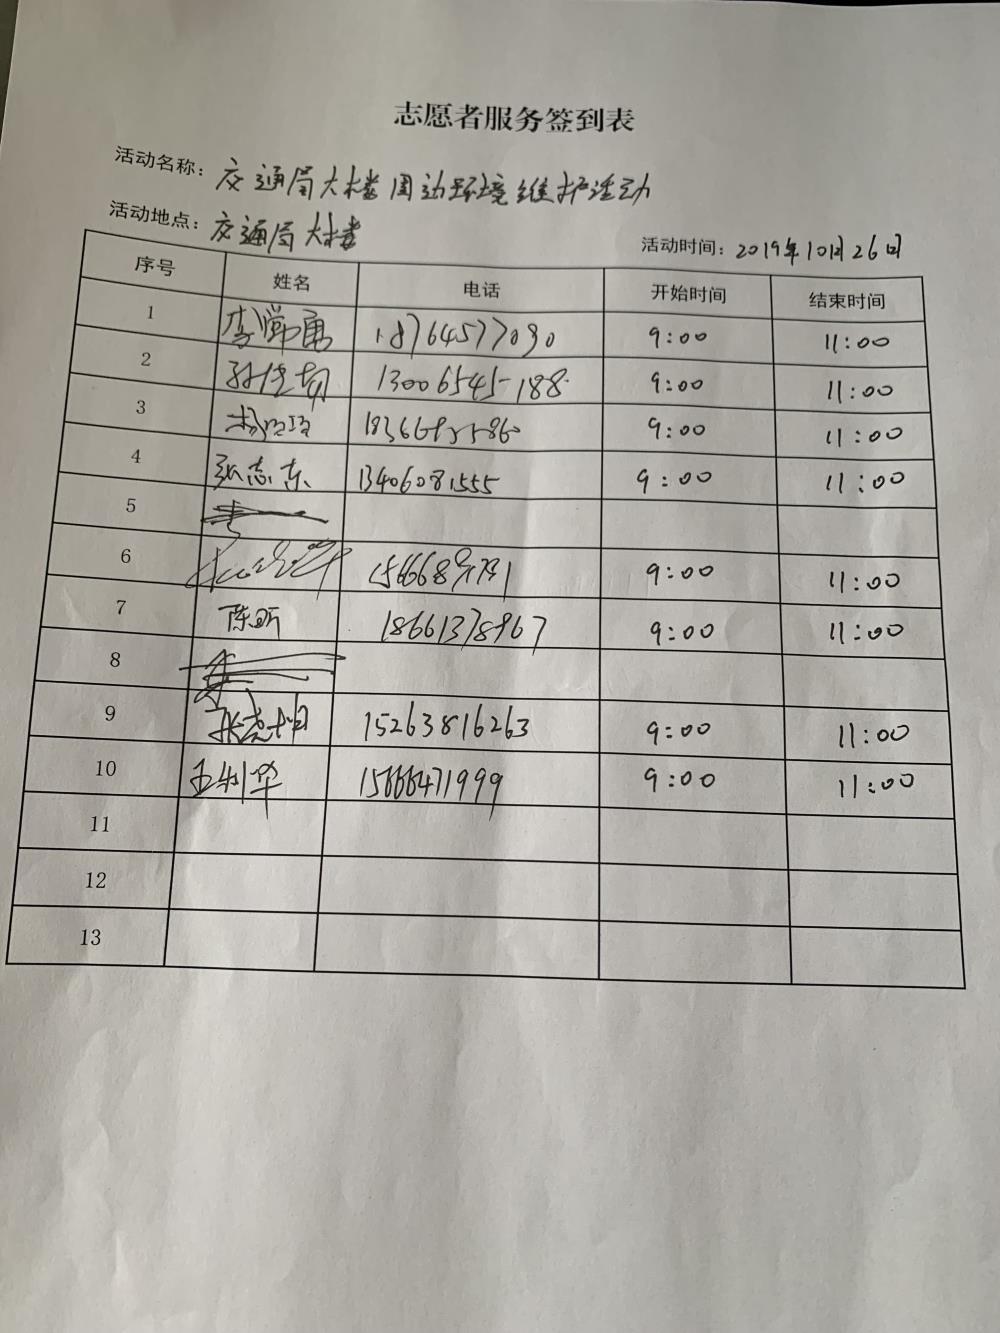 志愿者服务签到表
活动名称：交通局大楼周边环境维护活动
活动地点：交通局大楼 活动时间：2019年10月26日
序号 姓名 电话 开始时间 结束时间
1 18764577090 9:00 11:00
2 13006545188 9:00 11:00
3 9:00 11:00
4 张志东 13406081555 9:00 11:00
5
6 9:00 11:00
7 陈昕 18661378967 9:00 11:00
8
9 15263816263 9:00 11:00
10 王利华 15666471999 9:00 11:00
11
12
13